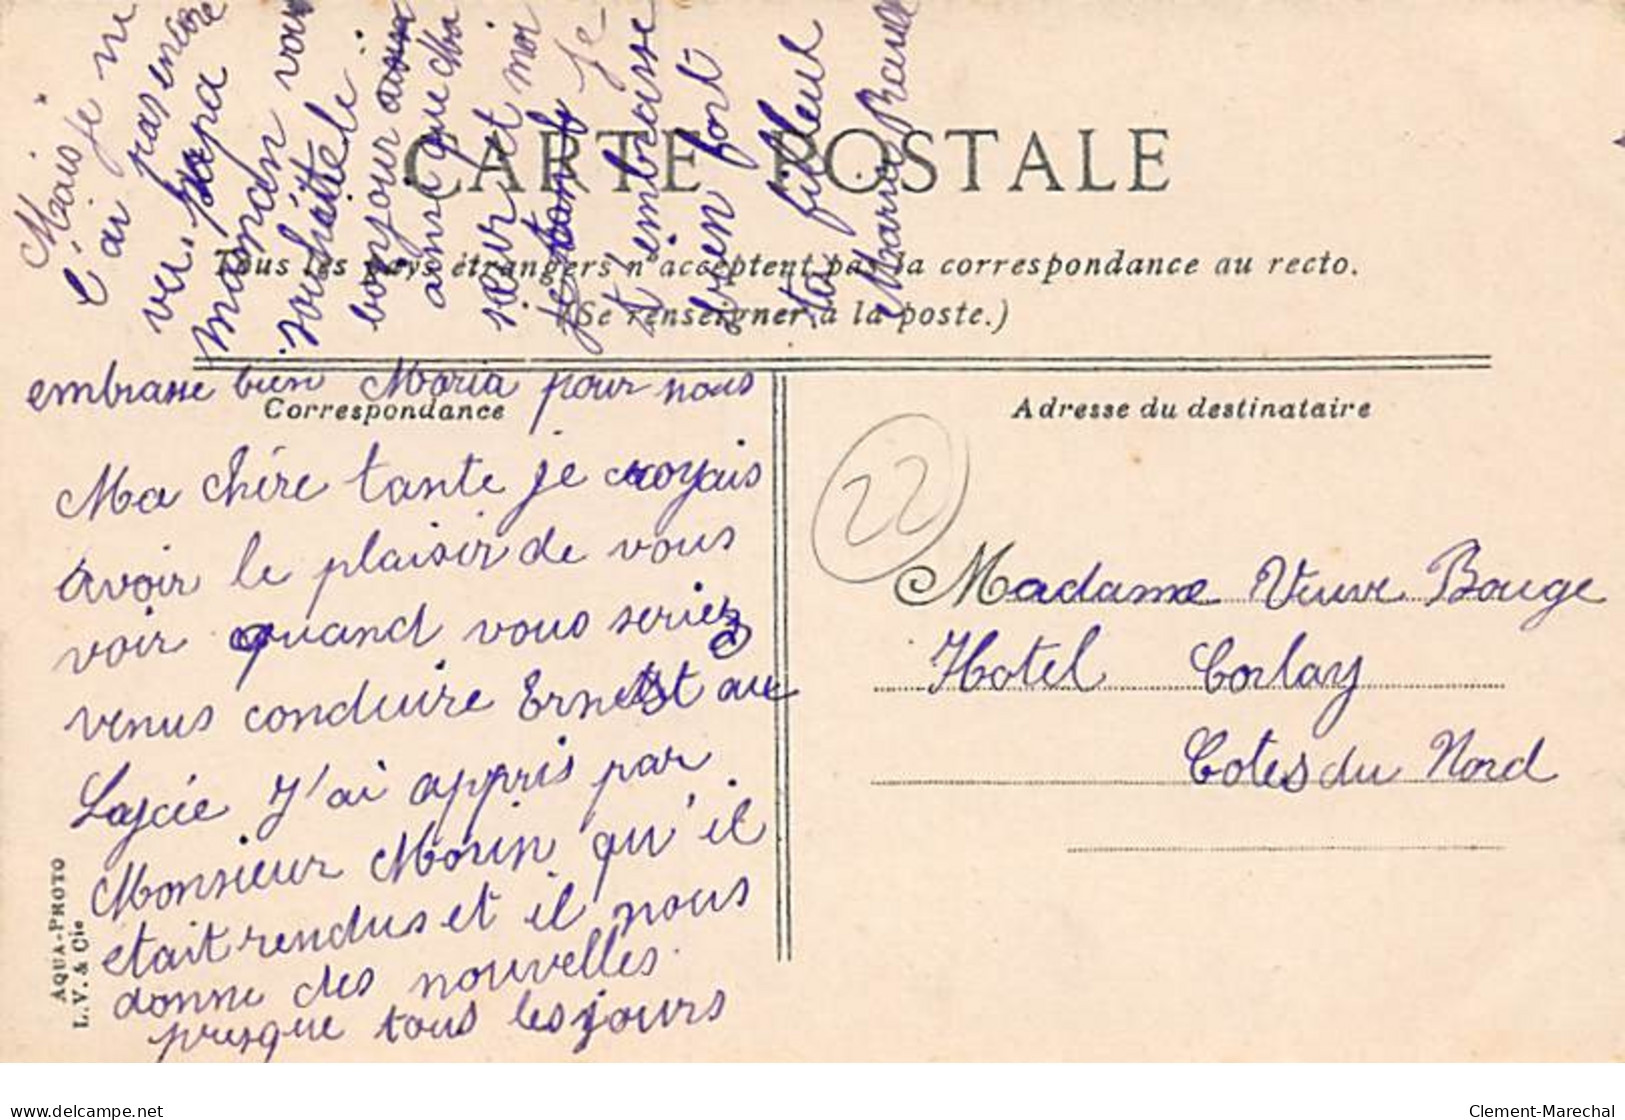 Mais je ne
l'ai pas encore
vu. papa
maman vous
souhaite le
bonjour aussi
ainsi que ma
sœur et moi
je tante Je
t'embrasse
bien fort
ta filleul
Maria
CARTE POSTALE
Tous les pays étrangers n'acceptent pas la correspondance au recto.
(Se renseigner à la poste.)
embrasse bien Maria pour nous
Correspondance
Adresse du destinataire
Ma chère tante je croyais
avoir le plaisir de vous
voir quand vous seriez
venus conduire Ernest au
Lycée J'ai appris par
Monsieur Morin qu'il
était rendus et il nous
donne des nouvelles
presque tous les jours
22
Madame Veuve Bouge
Hotel Corlay
Cotes du Nord
AQUA-PHOTO
L.V. & Cie
www.delcampe.net
Clement-Marechal